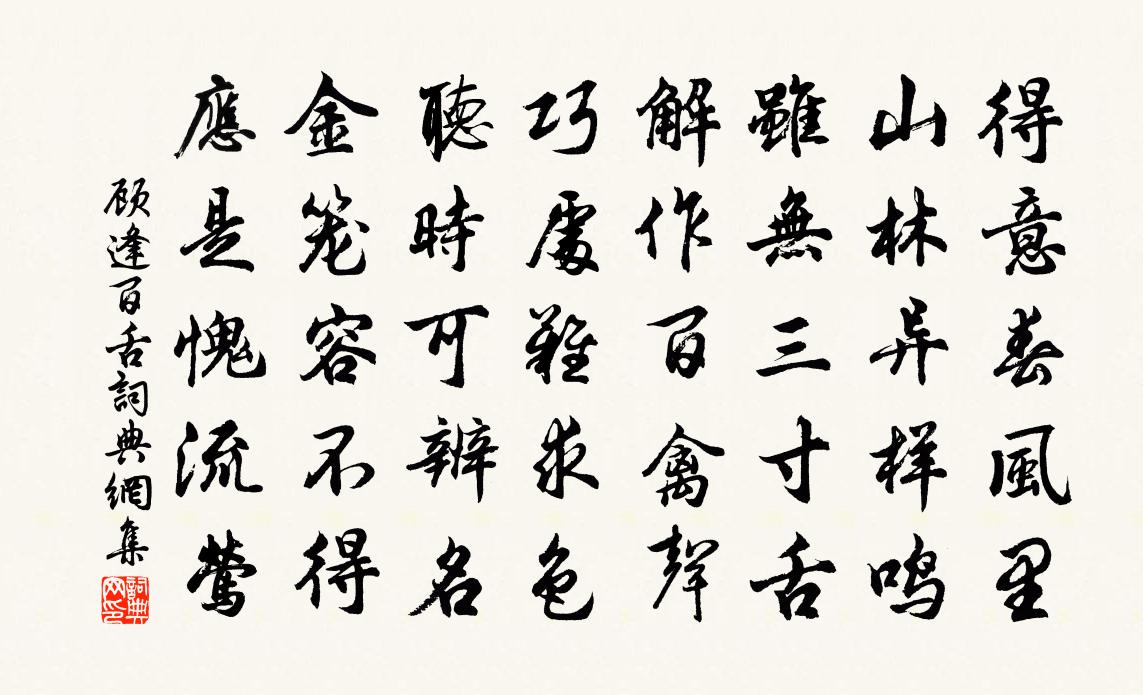 得意春風里
山林异样鸣
雖無三寸舌
解作百禽聲
巧處難求色
聽時可辨名
金笼容不得
應是愧流莺
顾逢百舌詞典網集
詞典网印